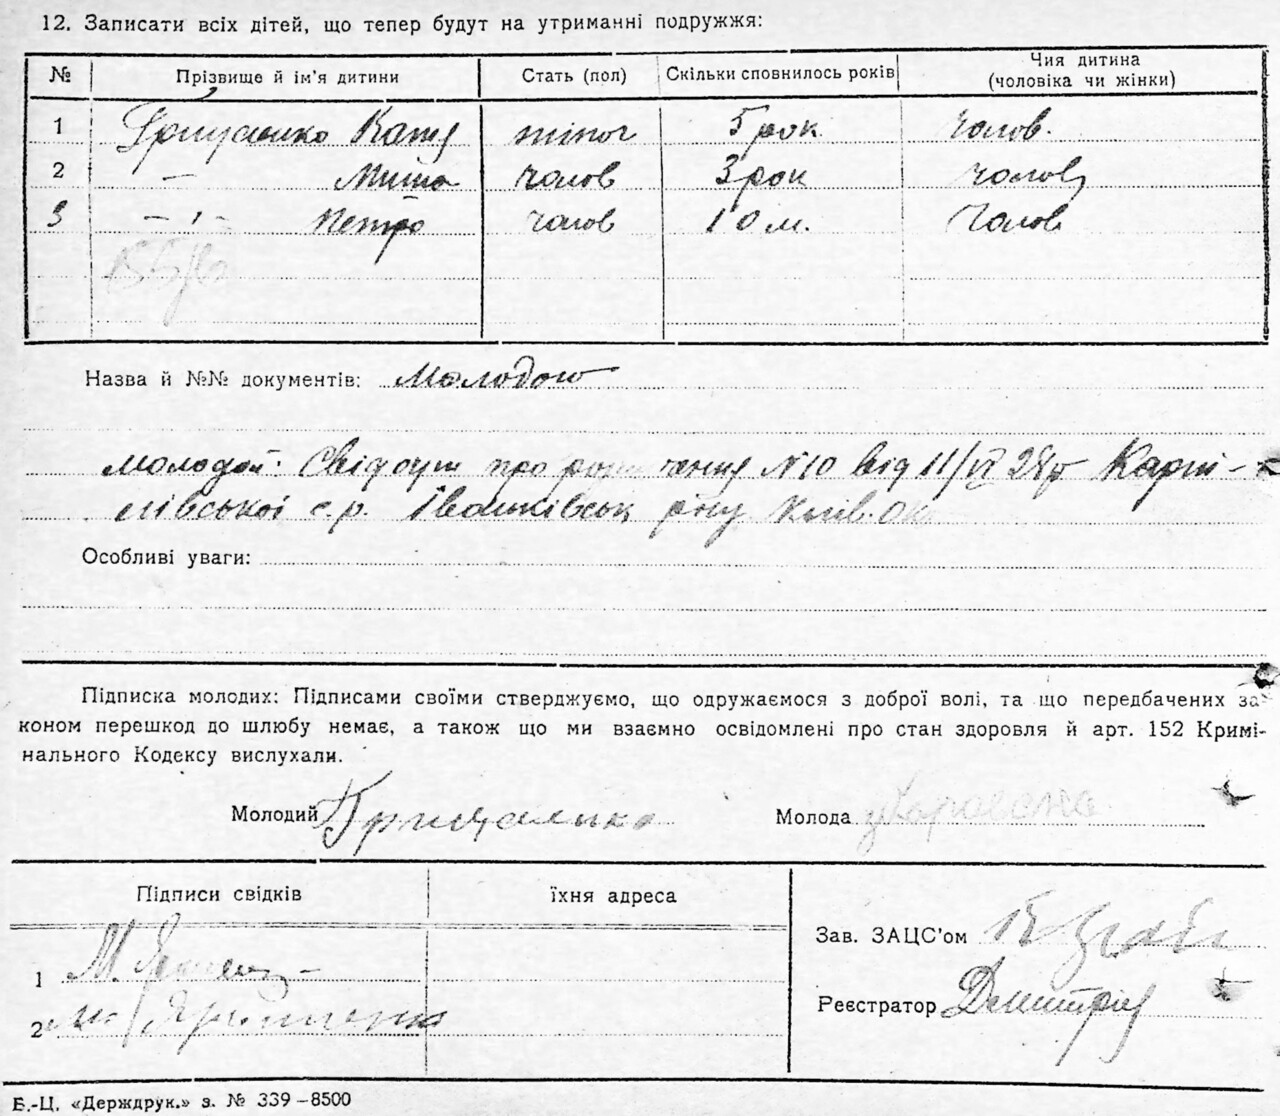 12. Записати всіх дітей, що тепер будут на утриманні подружжя:
№ Прізвище й ім'я дитини Стать (пол) Скільки сповнилось років Чия дитина (чоловіка чи жінки)
1 Грищенко Катя жіноч 5 рок. Чолов.
2 — Миша чолов 3 рок чолов
3 — " — Петро чолов 10 м. Чолов
Назва й №№ документів: Молодого
молодої: Свідоцт про родження N10 від 11/VI 28р Карпи-
лівської с.р. Іванківськ р-ну Київ. ок.
Особливі уваги:
Підписка молодих: Підписами своїми стверджуємо, що одружаємося з доброї волі, та що передбачених за-
коном перешкод до шлюбу немає, а також що ми взаємно освідомлені про стан здоровля й арт. 152 Кримі-
нального Кодексу вислухали.
Молодий Грищенко Молода
Підписи свідків їхня адреса
Зав. ЗАЦС'ом
1 М.
Реєстратор
2
Б.-Ц. «Держдрук.» з. № 339–8500